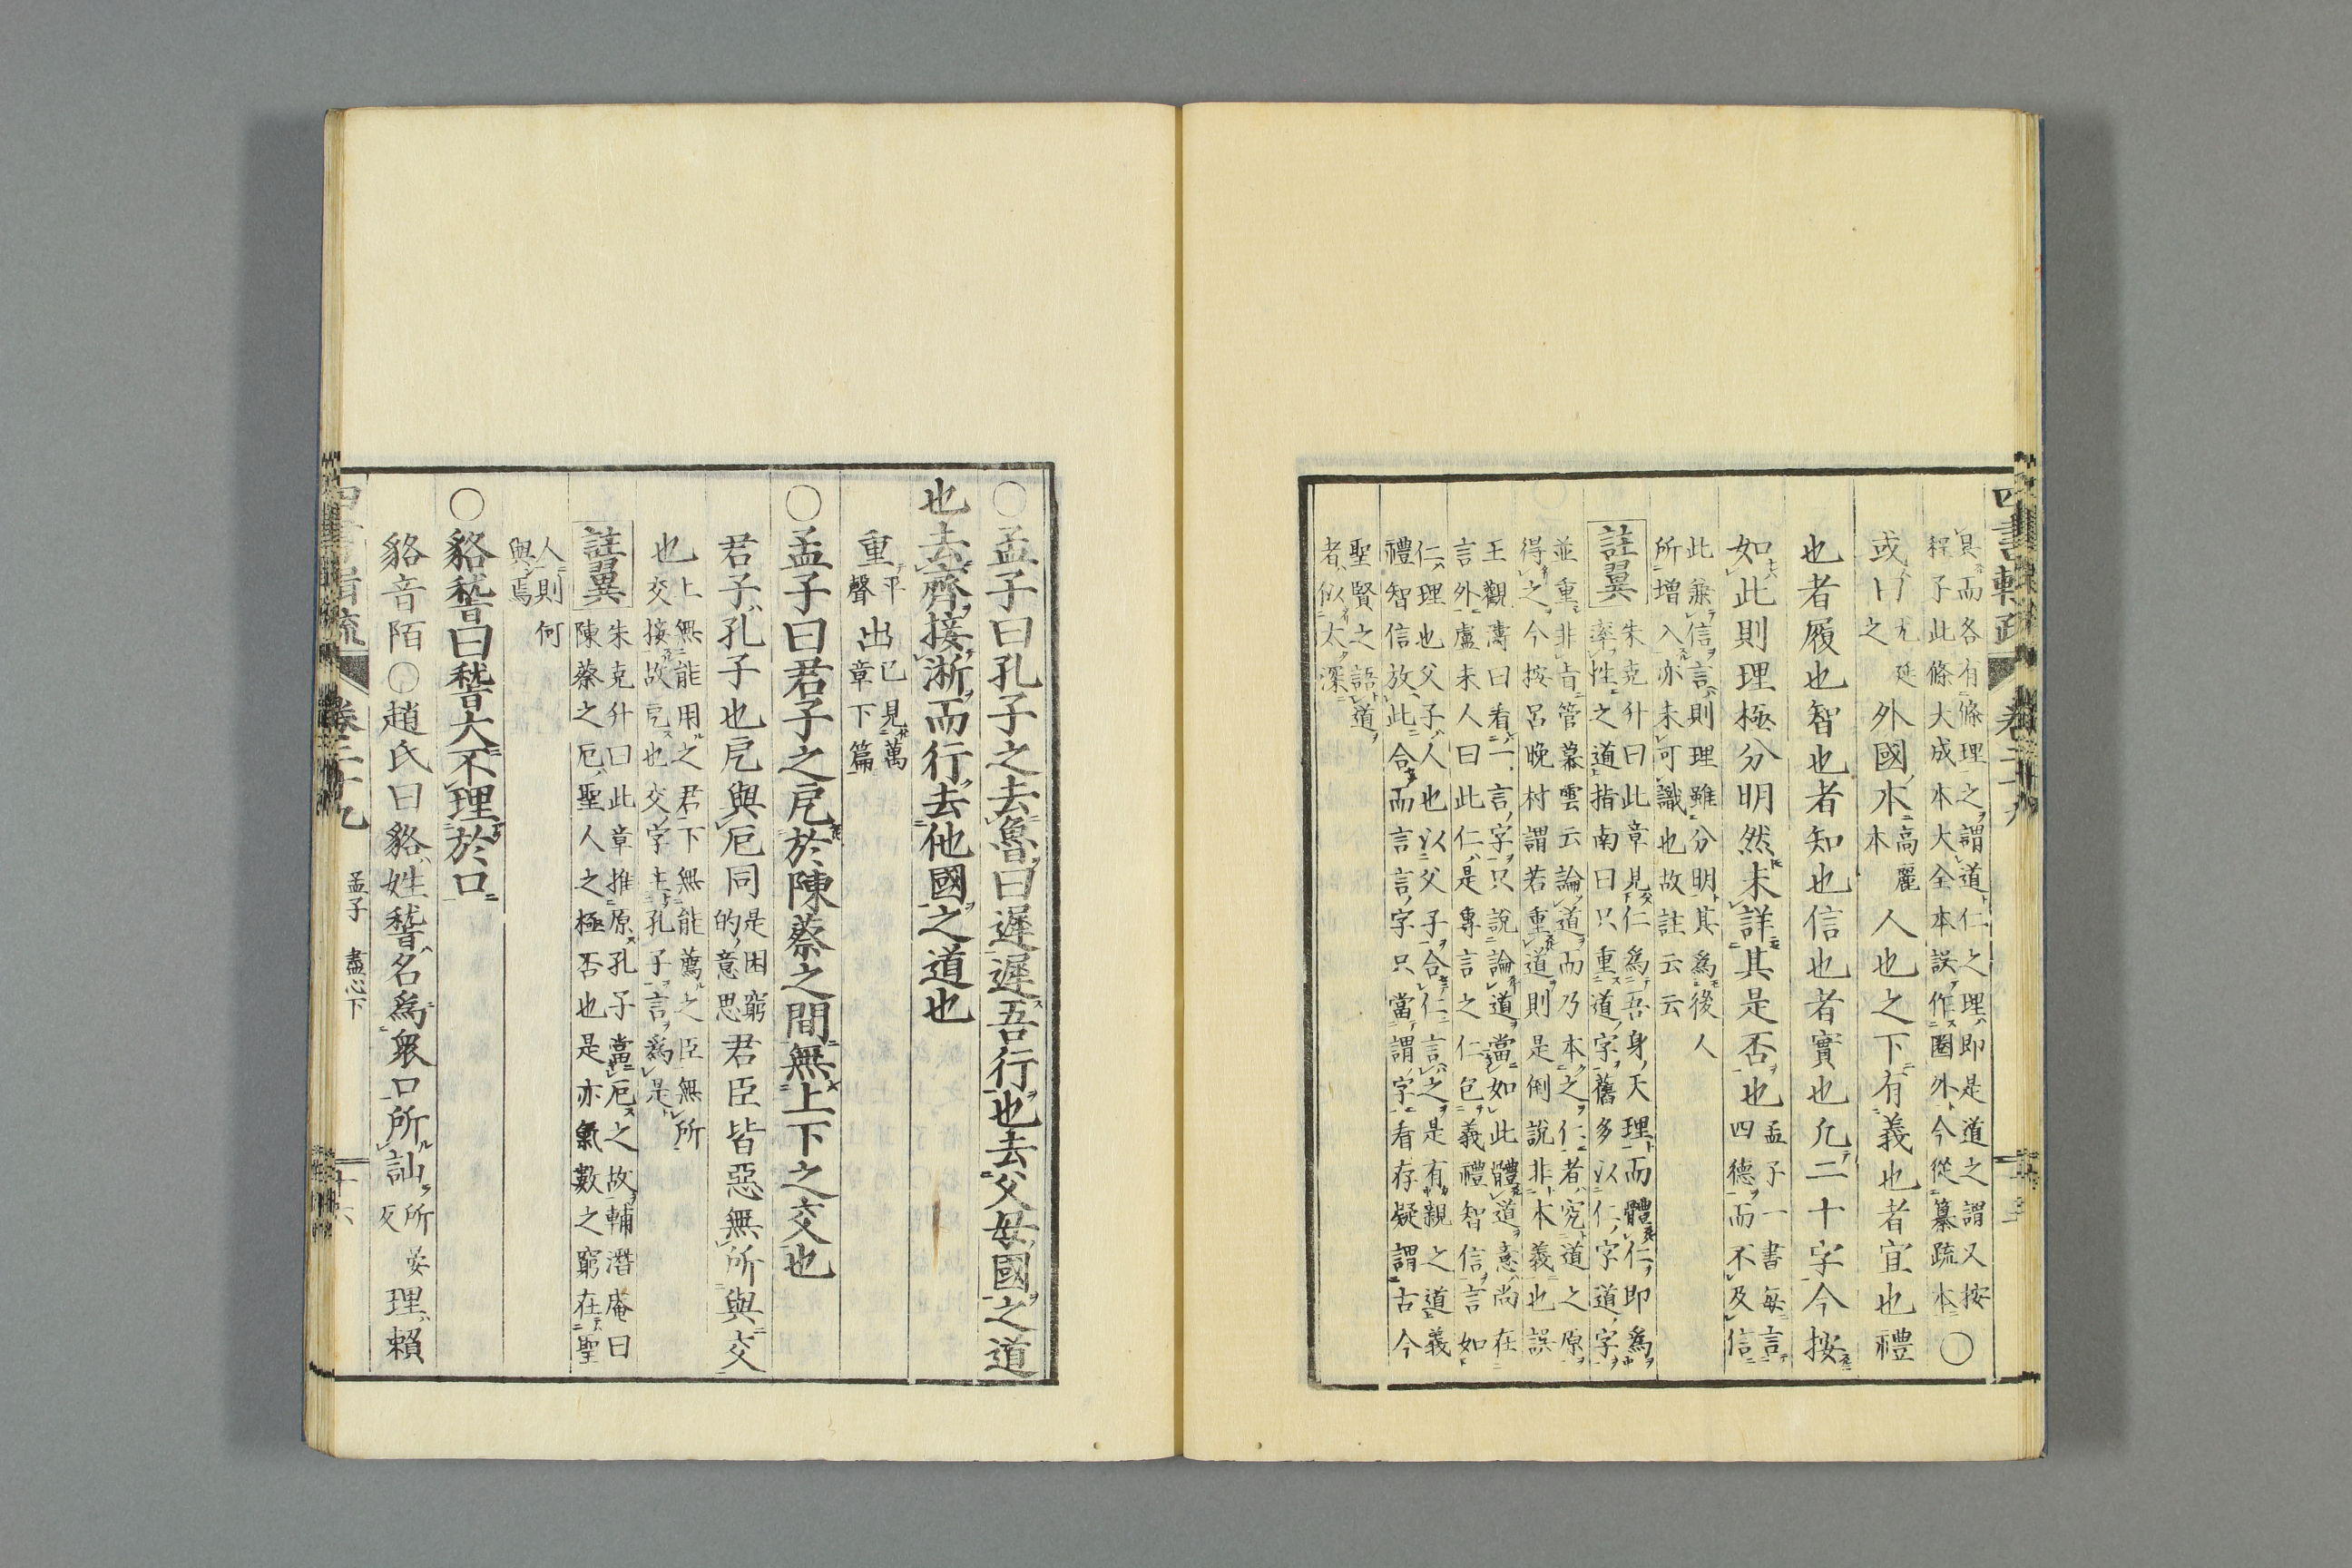 四書輯疏 卷二十九
具而各有條理之謂道仁之理即是道之謂又按
程子此條大成本大全本誤作圈外今從纂疏本○
或卜之尤延外國本高麗本人也之下有義也者宜也禮
也者履也智也者知也信也者實也凡二十字今按
如此則理極分明然未詳其是否也孟子一書每言四德而不及信
此兼信言則理雖分明其為後人
所增入亦未可識也故註云云
註翼朱克升曰此章見仁為吾身天理而體仁即為
率性之道指南曰只重道字舊多以仁字道字
並重非旨管幕雲云論道而乃本之仁者究道之原
得之今按呂晚村謂若重道則是倒說非本義也誤
王觀濤曰看二言字只說論道當如此體道意尚在
言外盧未人曰此仁是專言之仁包義禮智信言如
仁理也父子人也以父子合仁言之是有親之道義
禮智信放此合而言言字只當謂字看存疑謂古今
聖賢之語道
者似太深
○孟子曰孔子之去魯曰遲遲吾行也去父母國之道
也去齊接淅而行去他國之道也
重平聲出已見萬章下篇
○孟子曰君子之戹於陳蔡之間無上下之交也
君子孔子也戹與厄同是困窮的意思君臣皆惡無所與交
也上無能用之君下無能薦之臣無所
交接故戹也交字主孔子言為是
註翼朱克升曰此章推原孔子當厄之故輔潛庵曰
陳蔡之厄聖人之極否也是亦氣數之窮在聖
人則何
與焉
○貉稽曰稽大不理於口
貉音陌○趙氏曰貉姓稽名為眾口所訕所晏反理賴
卷二十九 孟子 盡心下 十六